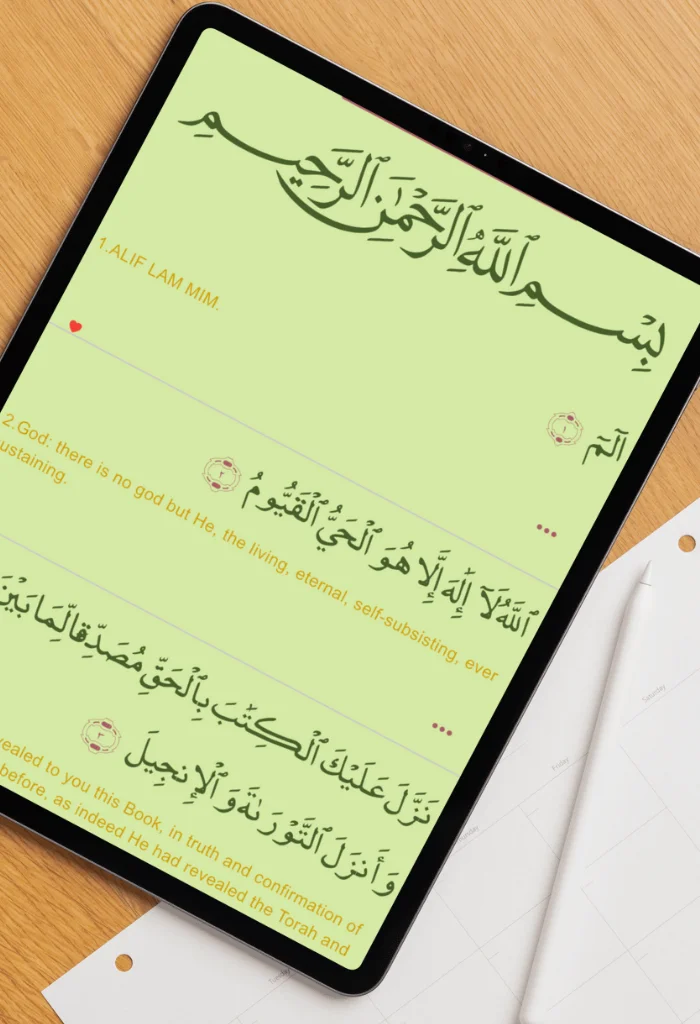 بِسْمِ ٱللَّهِ ٱلرَّحْمَٰنِ ٱلرَّحِيمِ
1.ALIF LAM MIM.
الٓمٓ ١
ٱللَّهُ لَآ إِلَٰهَ إِلَّا هُوَ ٱلْحَيُّ ٱلْقَيُّومُ ٢
2.God: there is no god but He, the living, eternal, self-subsisting, ever
ustaining.
نَزَّلَ عَلَيْكَ ٱلْكِتَٰبَ بِٱلْحَقِّ مُصَدِّقًا لِّمَا بَيْنَ
وَأَنزَلَ ٱلتَّوْرَىٰةَ وَٱلْإِنجِيلَ ٣
vealed to you this Book, in truth and confirmation of
before, as indeed He had revealed the Torah and
Saturday
Friday
Tuesday